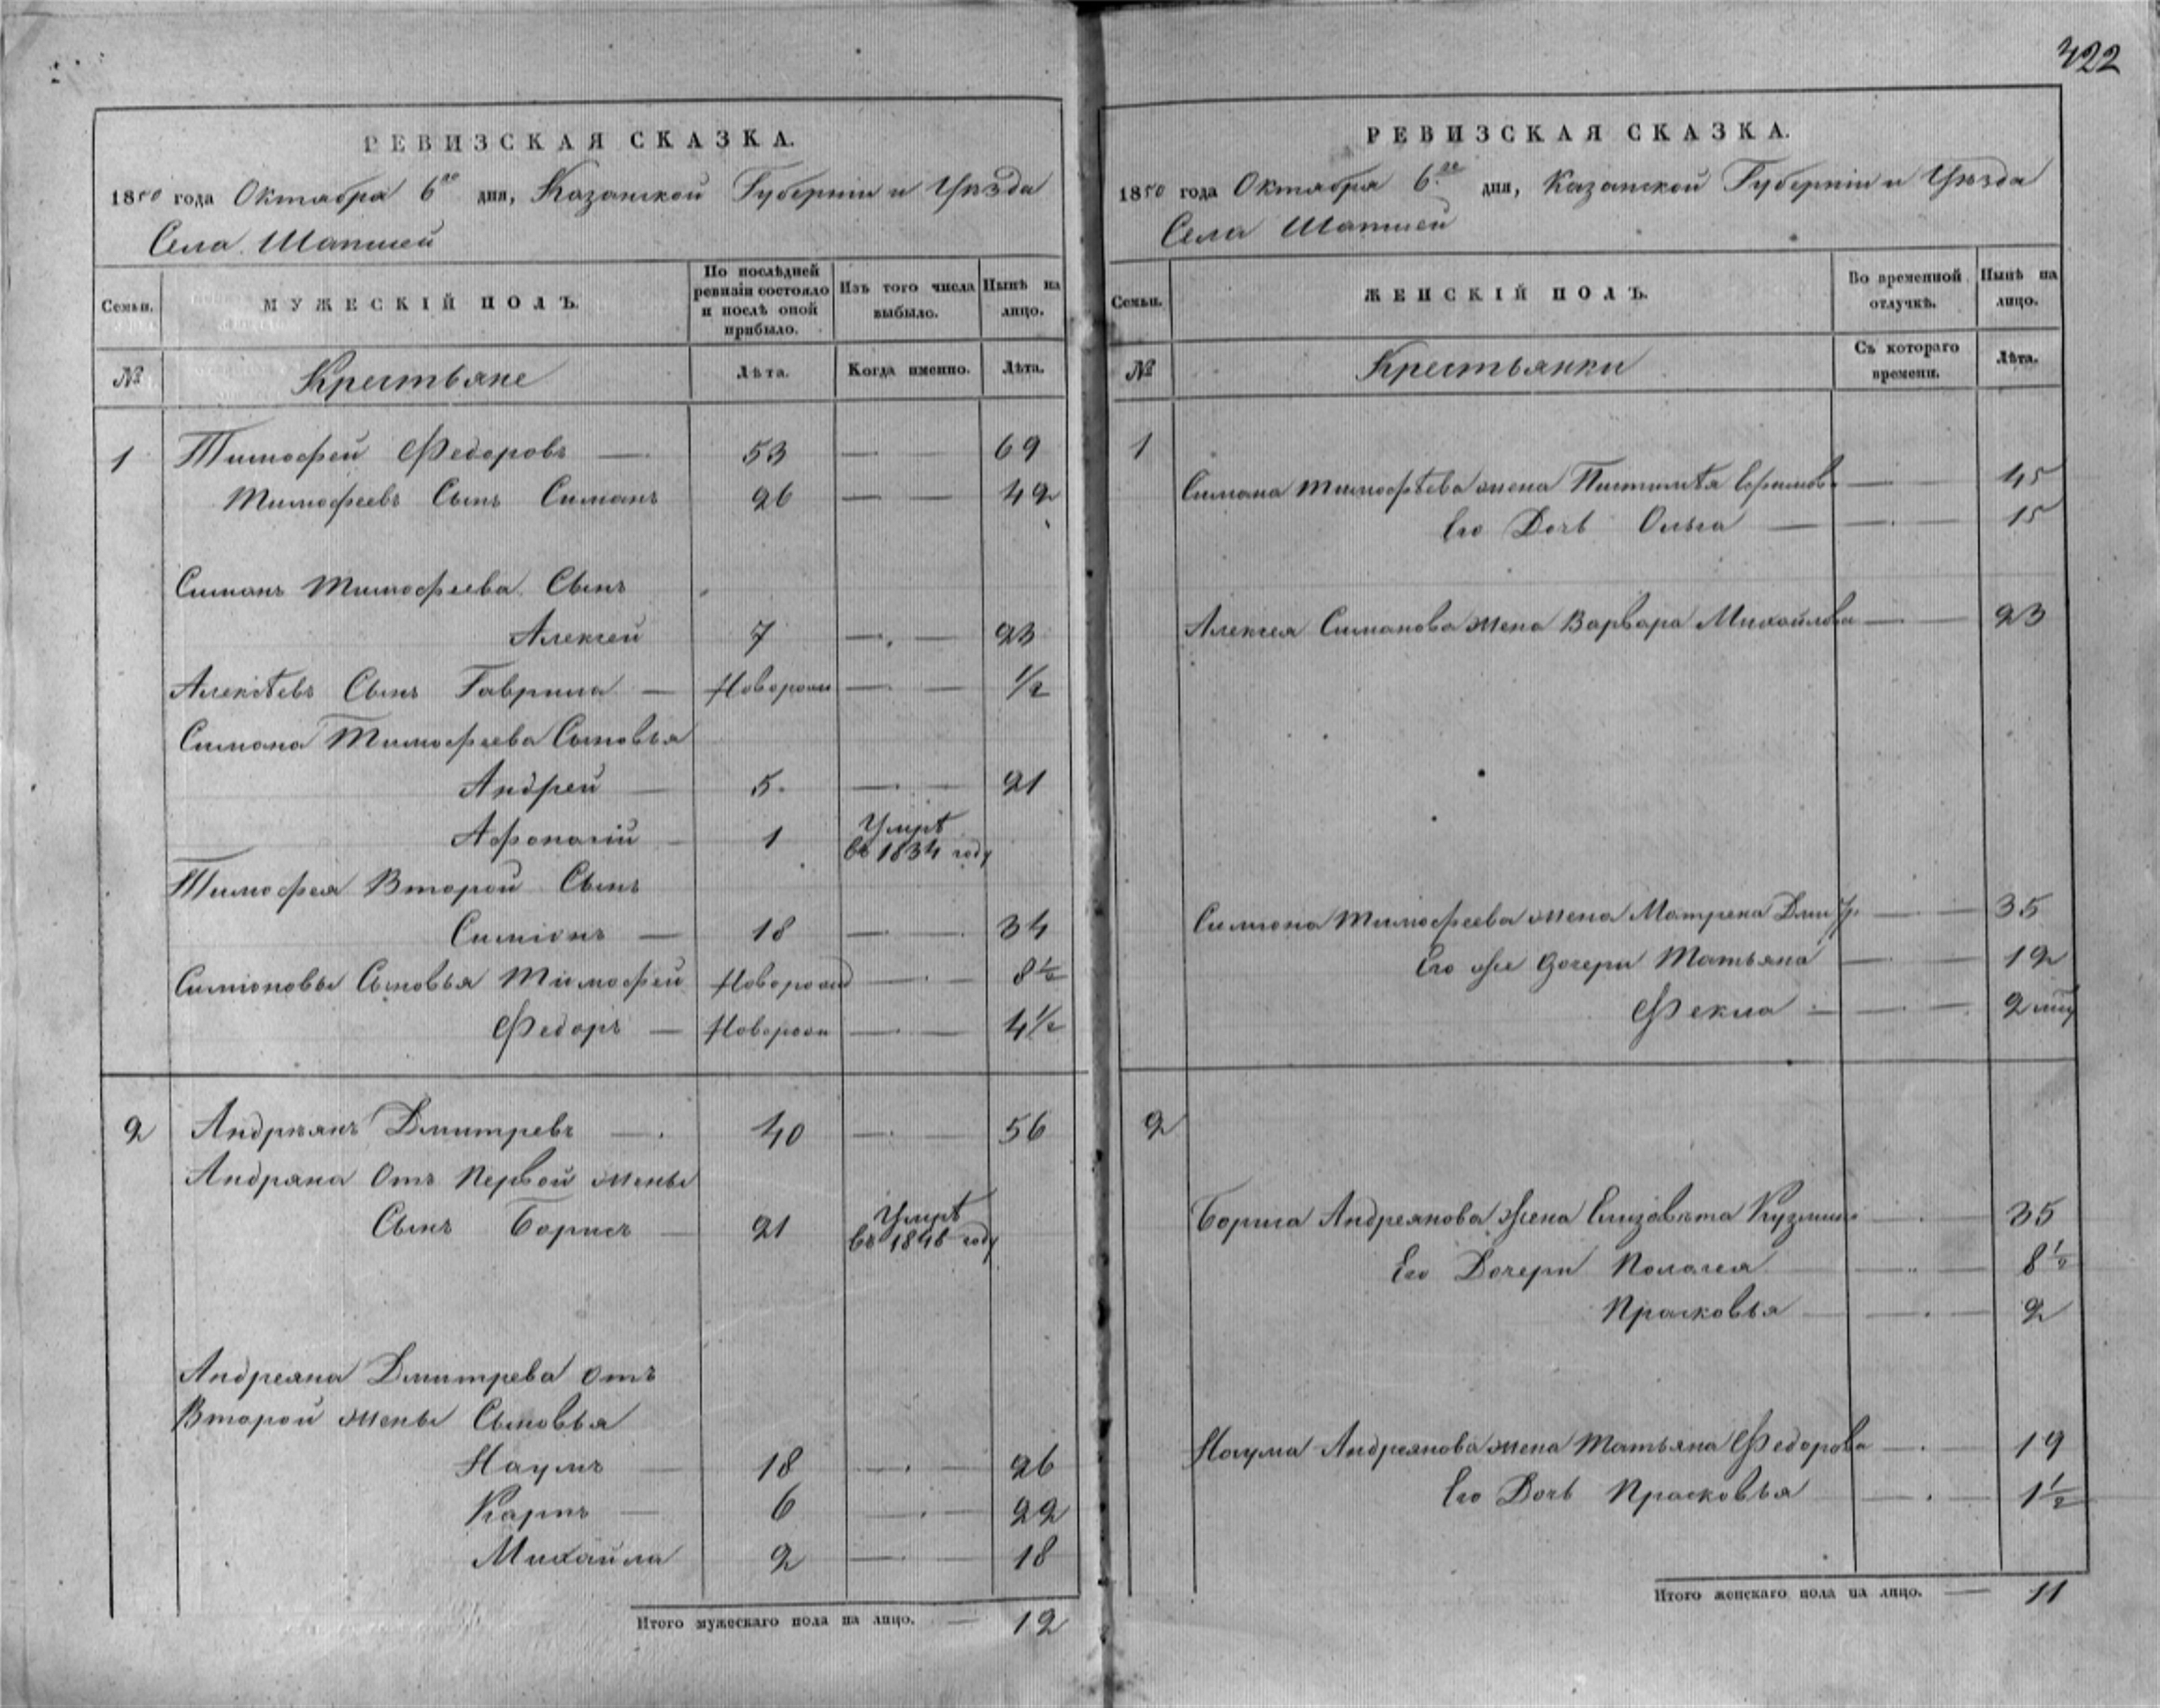 422
РЕВИЗСКАЯ СКАЗКА.
1850 года Октября 6го дня, Казанской Губерніи и Уѣзда
Села Шапшей
Семьи.
МУЖЕСКІЙ ПОЛЪ.
По послѣдней ревизіи состояло и послѣ оной прибыло.
Изъ того числа выбыло.
Нынѣ на лицо.
№
Крестьяне
Лѣта.
Когда именно.
Лѣта.
1 Тимофей Федоровъ — 53 — 69
Тимофеевъ Сынъ Симанъ 26 — — 42
Симанъ Тимофеева Сынъ
Алексей 7 — — 23
Алексѣевъ Сынъ Гаврила — Новорожн — — 1/2
Симана Тимофеева Сыновья
Андрей — 5 — — 21
Афонасій — 1 Умрѣ въ 1834 году
Тимофея Второй Сынъ
Симіонъ — 18 — — 34
Симіоновы Сыновья Тимофей Новорожд — — 8 1/2
Федоръ — Новорожн — — 4 1/2
2 Андреянъ Дмитревъ — 40 — — 56
Андряна Отъ Первой жены
Сынъ Борисъ — 21 Умрѣ въ 1848 году
Андреяна Дмитрева отъ
Второй жены Сыновья
Наумъ — 18 — — 26
Карпъ — 6 — — 22
Михайла 2 — — 18
Итого мужескаго пола на лицо. — 12
РЕВИЗСКАЯ СКАЗКА.
1850 года Октября 6го дня, Казанской Губерніи и Уѣзда
Села Шапшей
Семьи.
ЖЕНСКІЙ ПОЛЪ.
Во временной отлучкѣ.
Нынѣ на лицо.
№
Крестьянки
Съ котораго времени.
Лѣта.
1
Симана Тимофѣева жена — — 45
Его Дочь Ольга — — — 15
Алексея Симанова жена Варвара Михайлова — — 23
Симиона Тимофеева жена Матрена Дмитр — — 35
Его же дочери Татьяна — — 12
Фекла — — — 2
2
Бориса Андреянова жена Елизовѣта Кузмин — — 35
Его Дочери Пологея — — 8 1/2
Прасковья — — — 2
Наума Андреянова жена Татьяна Федорова — — 19
Его Дочь Прасковья — — 1 1/2
Итого женскаго пола на лицо. — 11